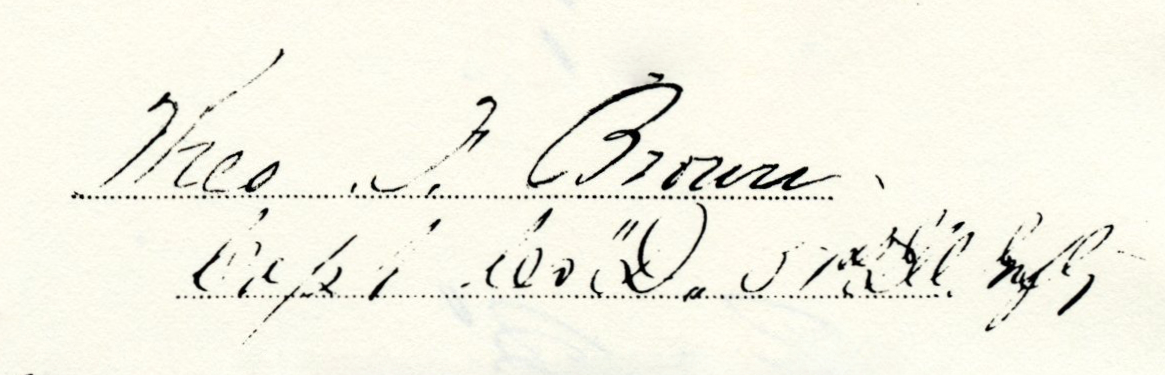 Theo. F. Brown
Capt Co "D" Ill Inf,